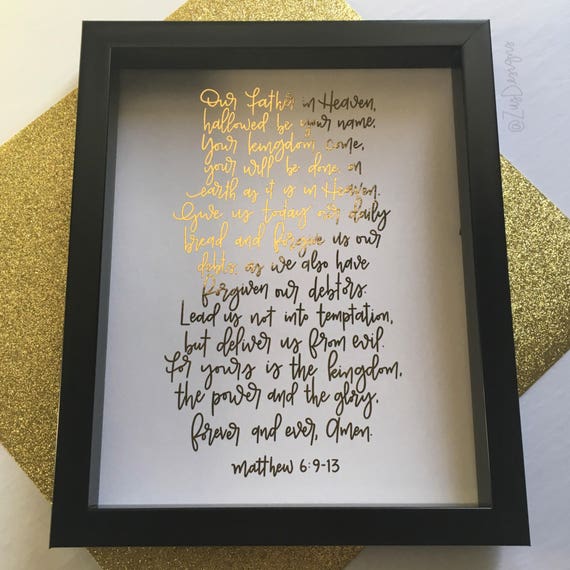 Our Father in Heaven,
hallowed be your name.
Your kingdom come,
your will be done, on
earth as it is in Heaven.
Give us today our daily
bread and forgive us our
debts, as we also have
forgiven our debtors.
Lead us not into temptation,
but deliver us from evil.
For yours is the kingdom,
the power and the glory,
forever and ever, Amen.
matthew 6:9-13
@ZusDesigns